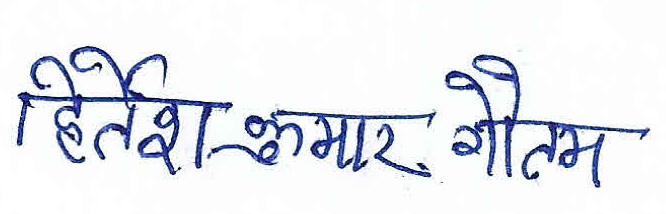 हितेश कुमार गौतम